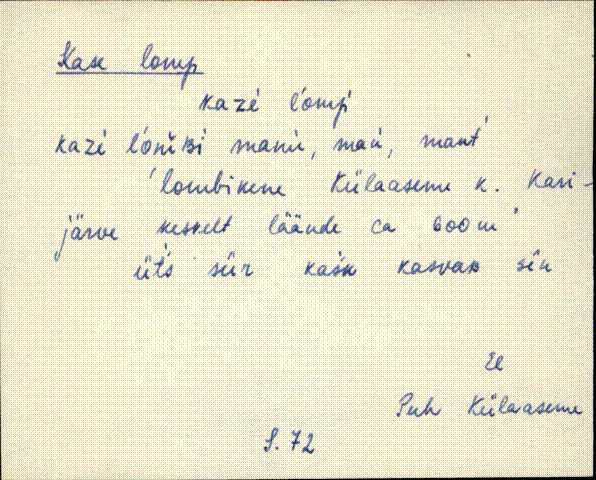 Kase lomp
kazé l'omp'
kazé l'oṁʙi manu, mań, mant'
'lombikene Külaaseme k. Kari-
järve keskelt läände ca 600m'
üt's sür kašk kasvaʙ sên
El
Puh Külaaseme
S. 72